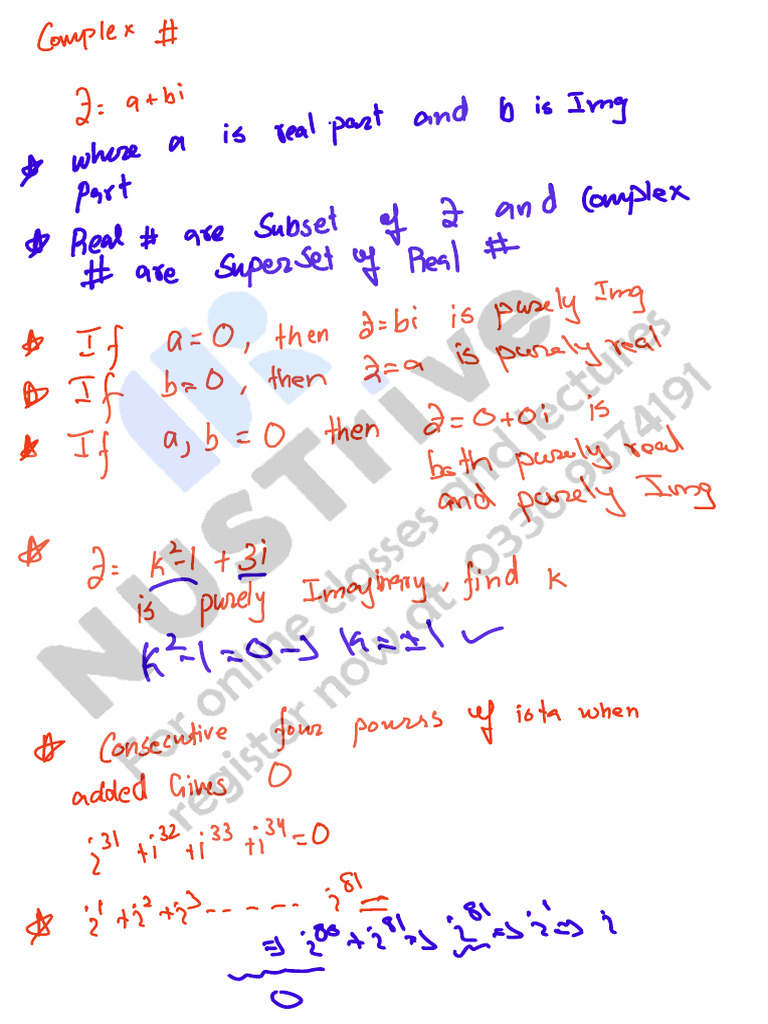 Complex #
z = a+bi
☆ where a is real part and b is Img
Part
☆ Real # are Subset of z and Complex
# are SuperSet of Real #
☆ If a=0, then z=bi is purely Img
☆ If b=0, then z=a is purely real
☆ If a, b = 0 then z=0+0i is
both purely real
and purely Img
☆ z = k²-1 + 3i
is purely Imaginery, find k
k²-1=0 → k=±1 ✓
☆ Consecutive four powers of iota when
added Gives 0
i³¹ + i³² + i³³ + i³⁴ = 0
☆ i¹ + i² + i³ ------- i⁸¹ =
⇒ i⁸⁰ + i⁸¹ → i⁸¹ ⇒ i¹ ⇒ i
0
NUSTrive
For online classes and lectures
register now at 0336 0374191